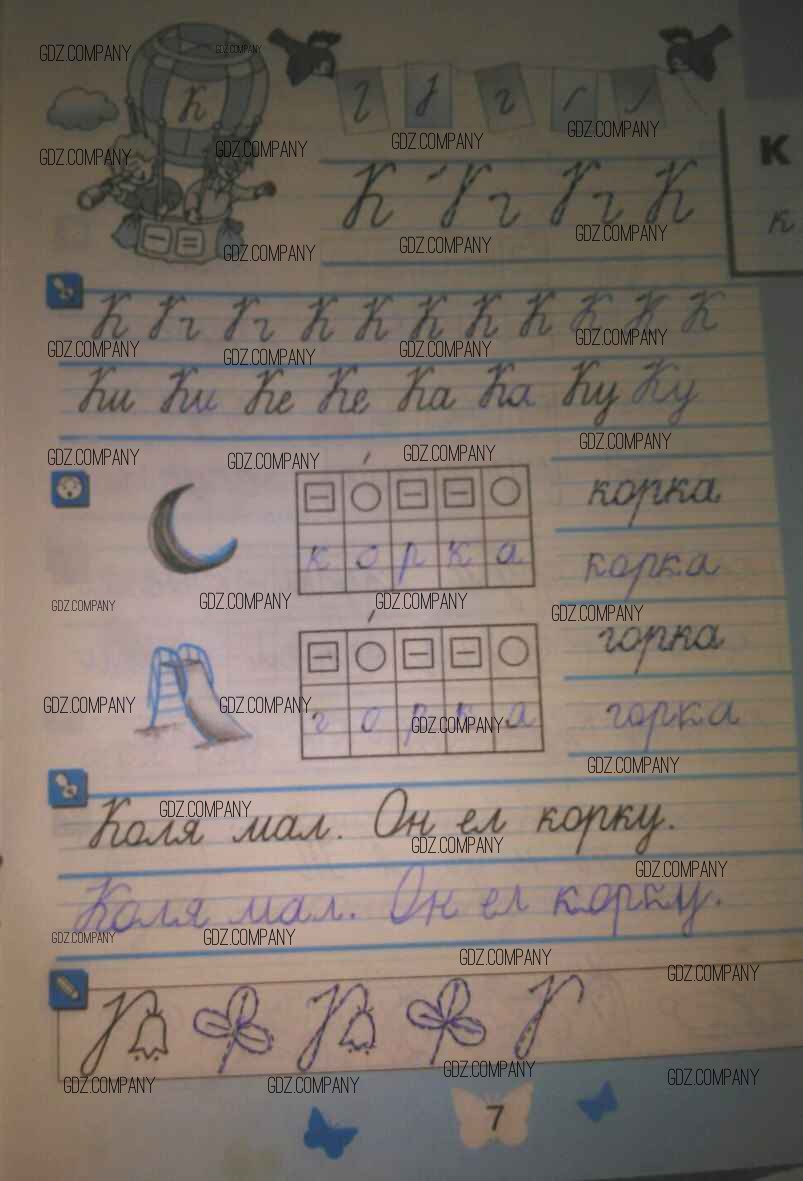 К
К К
к
К К К К К К К К К К К
Ки Ки Ке Ке Ка Ка Ку Ку
корка
к о р к а
корка
горка
г о р к а
горка
Коля мал. Он ел корку.
Коля мал. Он ел корку.
7
GDZ.COMPANY